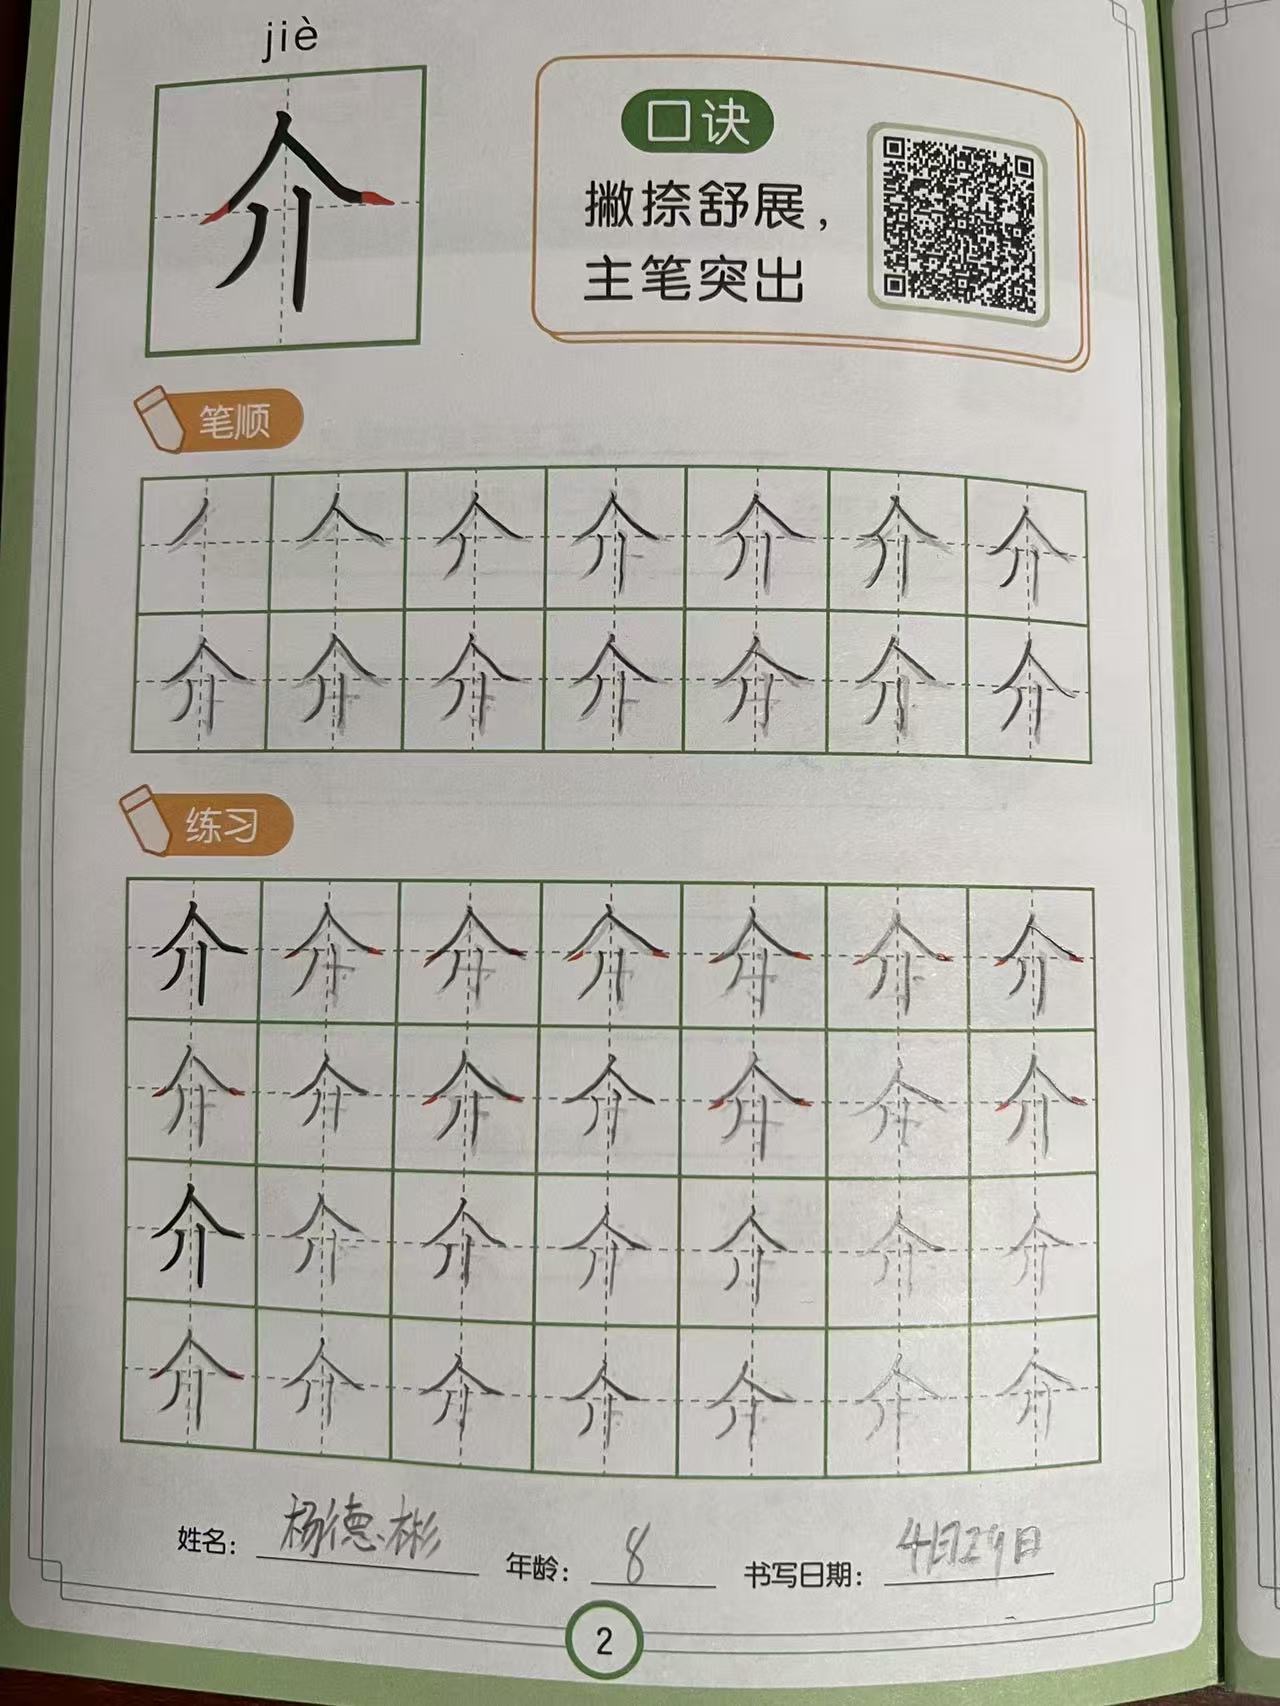 jiè
介
口诀
撇捺舒展，
主笔突出
笔顺
丿 人 介 介 介 介 介
介 介 介 介 介 介 介
练习
介 介 介 介 介 介 介
介 介 介 介 介 介 介
介 介 介 介 介 介 介
介 介 介 介 介 介 介
姓名：杨德彬 年龄：8 书写日期：4月29日
2